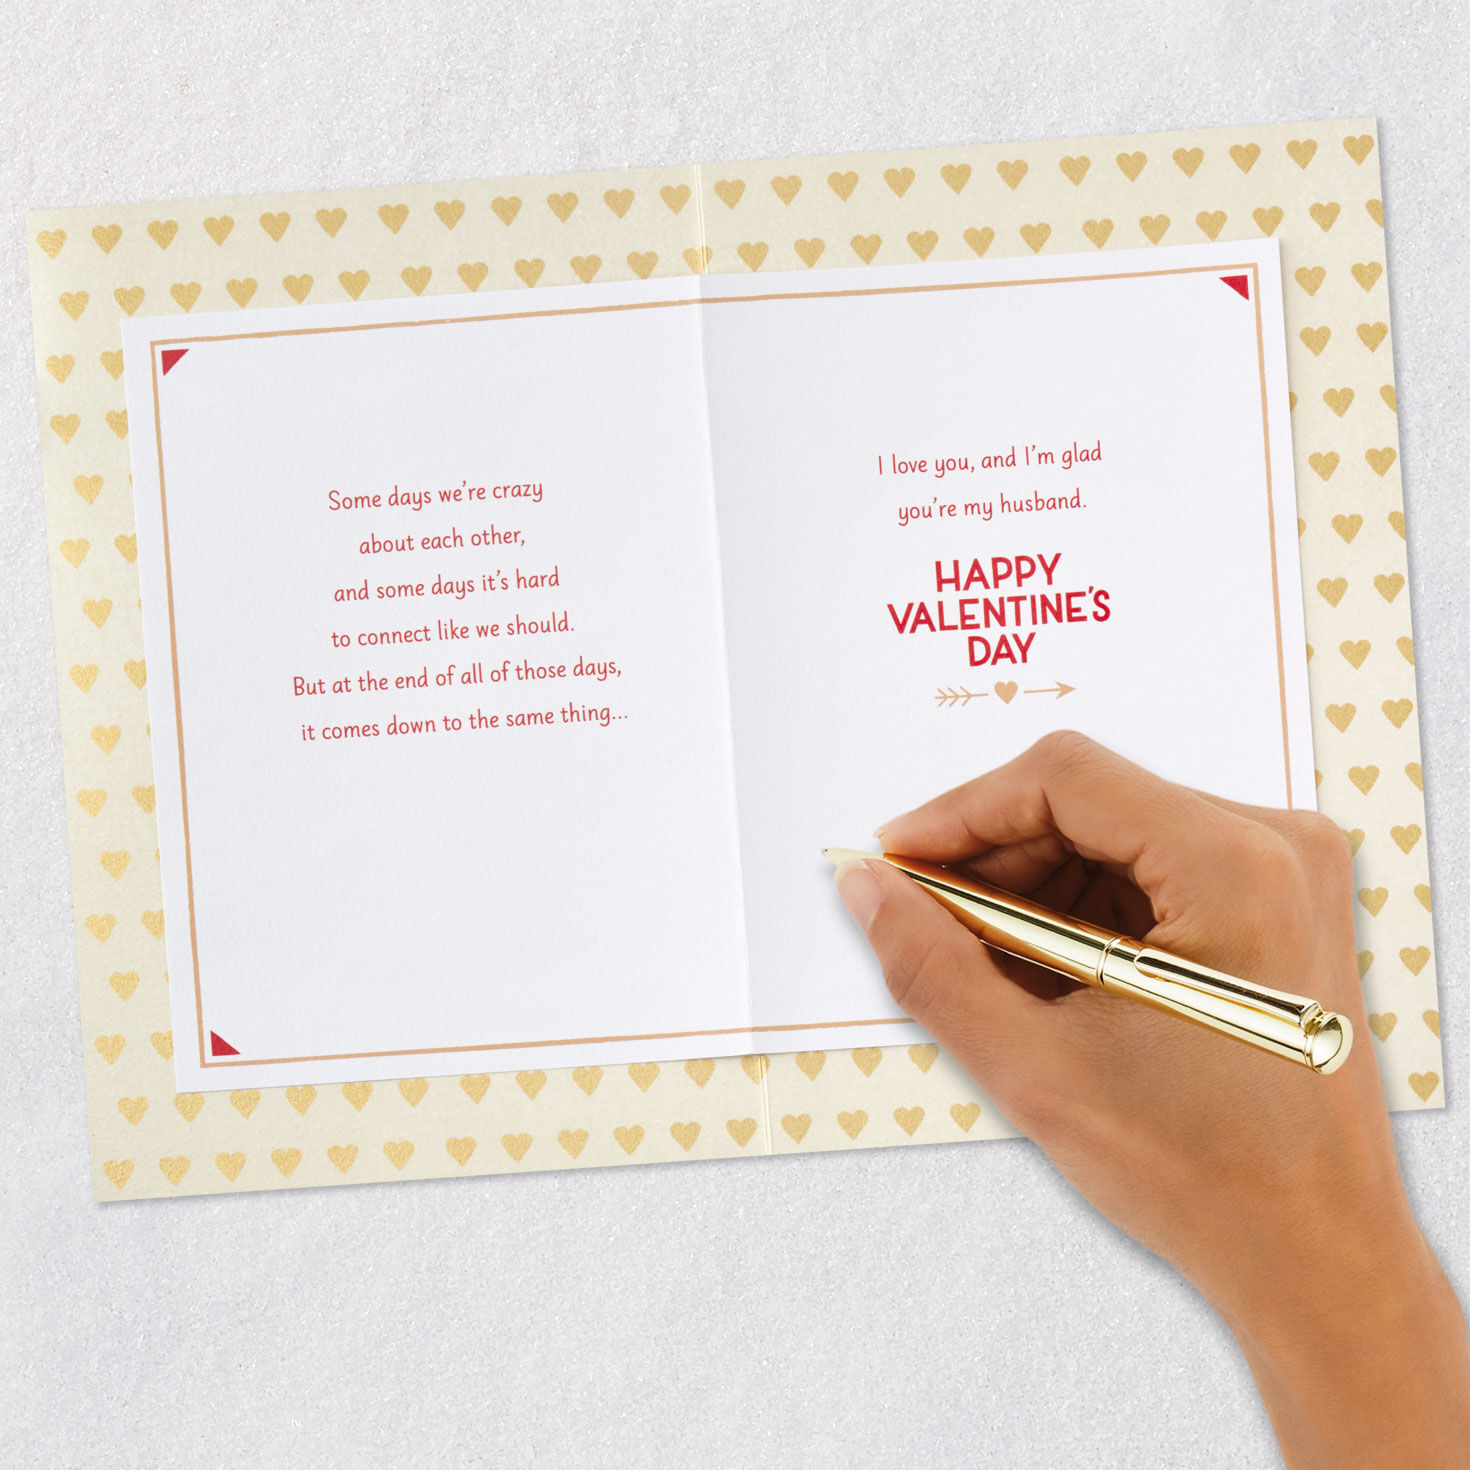 Some days we're crazy
about each other,
and some days it's hard
to connect like we should.
But at the end of all of those days,
it comes down to the same thing...
I love you, and I'm glad
you're my husband.
HAPPY
VALENTINE'S
DAY